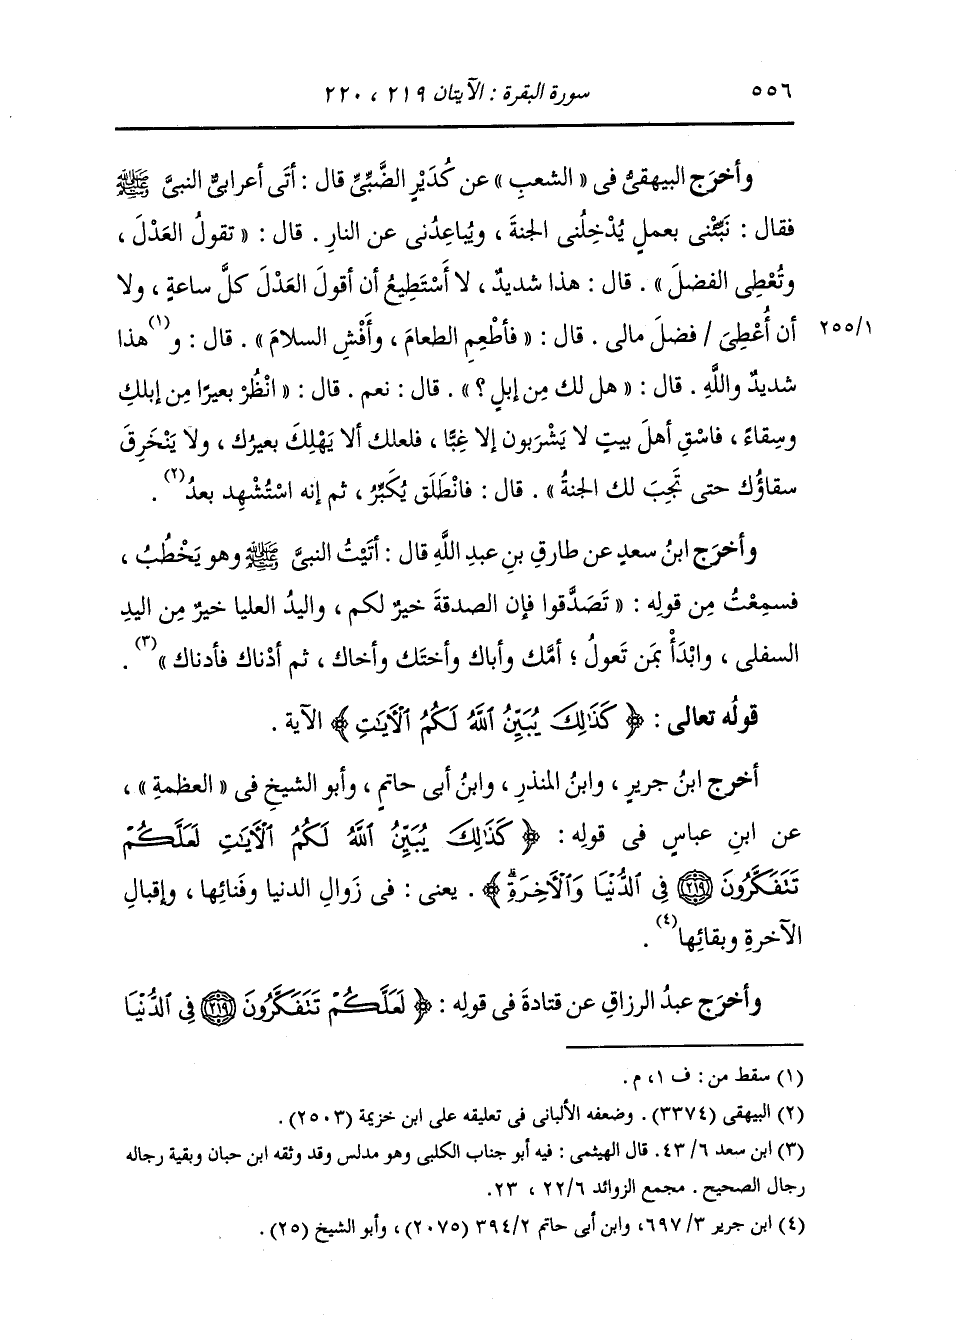 ٥٥٦
سورة البقرة : الآيتان ٢١٩ ، ٢٢٠
وأخرَج البيهقىُّ فى « الشعبِ » عن كُدَيْرٍ الضَّبِّىِّ قال : أتَى أعرابىٌّ النبىَّ ﷺ
فقال : نَبِّئْنى بعملٍ يُدْخِلُنى الجنةَ ، ويُباعِدُنى عن النارِ . قال : « تقولُ العَدْلَ ،
وتُعْطِى الفضلَ » . قال : هذا شديدٌ ، لا أَسْتَطِيعُ أن أقولَ العَدْلَ كلَّ ساعةٍ ، ولا
أن أُعْطِىَ / فضلَ مالى . قال : « فأطْعِمِ الطعامَ ، وأَفْشِ السلامَ » . قال : و(١)هذا
٢٥٥/١
شديدٌ واللَّهِ . قال : « هل لك مِن إبلٍ ؟ » . قال : نعم . قال : « انْظُرْ بعيرًا مِن إبلكِ
وسِقاءً ، فاسْقِ أهلَ بيتٍ لا يَشْرَبون إلا غِبًّا ، فلعلك ألا يَهْلِكَ بعيرُك ، ولا يَنْخَرِقَ
سقاؤُك حتى تَجِبَ لك الجنةُ » . قال : فانْطَلَق يُكَبِّرُ ، ثم إنه اسْتُشْهِد بعدُ(٢) .
وأخرَج ابنُ سعدٍ عن طارقِ بنِ عبدِ اللَّهِ قال : أتَيْتُ النبىَّ ﷺ وهو يَخْطُبُ ،
فسمِعْتُ مِن قولِه : « تَصَدَّقوا فإن الصدقةَ خيرٌ لكم ، واليدُ العليا خيرٌ مِن اليدِ
السفلى ، وابْدَأْ بمَن تَعولُ ؛ أمَّك وأباك وأختَك وأخاك ، ثم أدْناك فأدناك »(٣) .
قولُه تعالى : ﴿ كَذَٰلِكَ يُبَيِّنُ ٱللَّهُ لَكُمُ ٱلْأَيَٰتِ ﴾ الآية .
أخرج ابنُ جريرٍ ، وابنُ المنذرِ ، وابنُ أبى حاتمٍ ، وأبو الشيخِ فى « العظمةِ » ،
عن ابنِ عباسٍ فى قولِه : ﴿ كَذَٰلِكَ يُبَيِّنُ ٱللَّهُ لَكُمُ ٱلْأَيَٰتِ لَعَلَّكُمْ
تَتَفَكَّرُونَ ﴿٢١٩﴾ فِى ٱلدُّنْيَا وَٱلْأَخِرَةِۗ ﴾ . يعنى : فى زَوالِ الدنيا وفَنائِها ، وإقبالِ
الآخرةِ وبقائِها(٤) .
وأخرَج عبدُ الرزاقِ عن قتادةَ فى قولِه : ﴿ لَعَلَّكُمْ تَتَفَكَّرُونَ ﴿٢١٩﴾ فِى ٱلدُّنْيَا
(١) سقط من : ف ١، م .
(٢) البيهقى (٣٣٧٤) . وضعفه الألبانى فى تعليقه على ابن خزيمة (٢٥٠٣) .
(٣) ابن سعد ٦/ ٤٣. قال الهيثمى : فيه أبو جناب الكلبى وهو مدلس وقد وثقه ابن حبان وبقية رجاله
رجال الصحيح . مجمع الزوائد ٢٢/٦ ، ٢٣.
(٤) ابن جرير ٣/ ٦٩٧، وابن أبى حاتم ٣٩٤/٢ (٢٠٧٥) ، وأبو الشيخ (٢٥) .